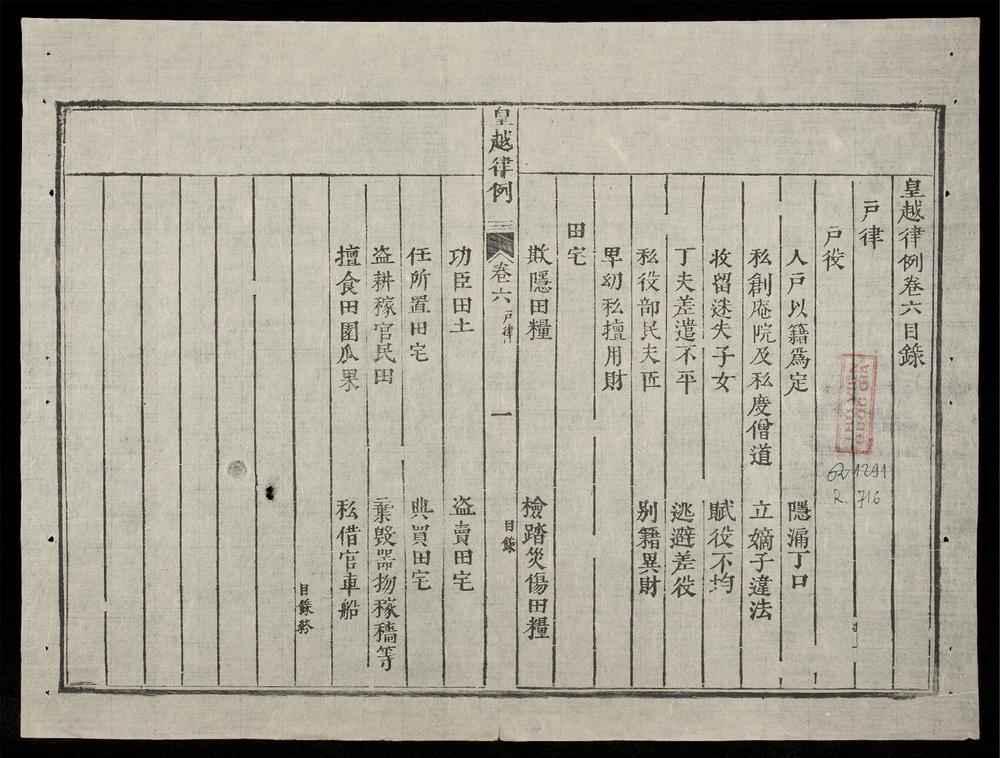 皇越律例卷六目錄
戶律
戶役
人戶以籍爲定 隱漏丁口
私創庵院及私度僧道 立嫡子違法
收留迷失子女 賦役不均
丁夫差遣不平 逃避差役
私役部民夫匠 別籍異財
卑幼私擅用財
田宅
欺隱田糧 檢踏災傷田糧
皇越律例 卷六 戶律 目錄 一
功臣田土 盗賣田宅
任所置田宅 典買田宅
盗耕稼官民田 棄毀器物稼穡等
擅食田園瓜果 私借官車船
目錄終
THƯ VIỆN
QUỐC GIA
R. 716